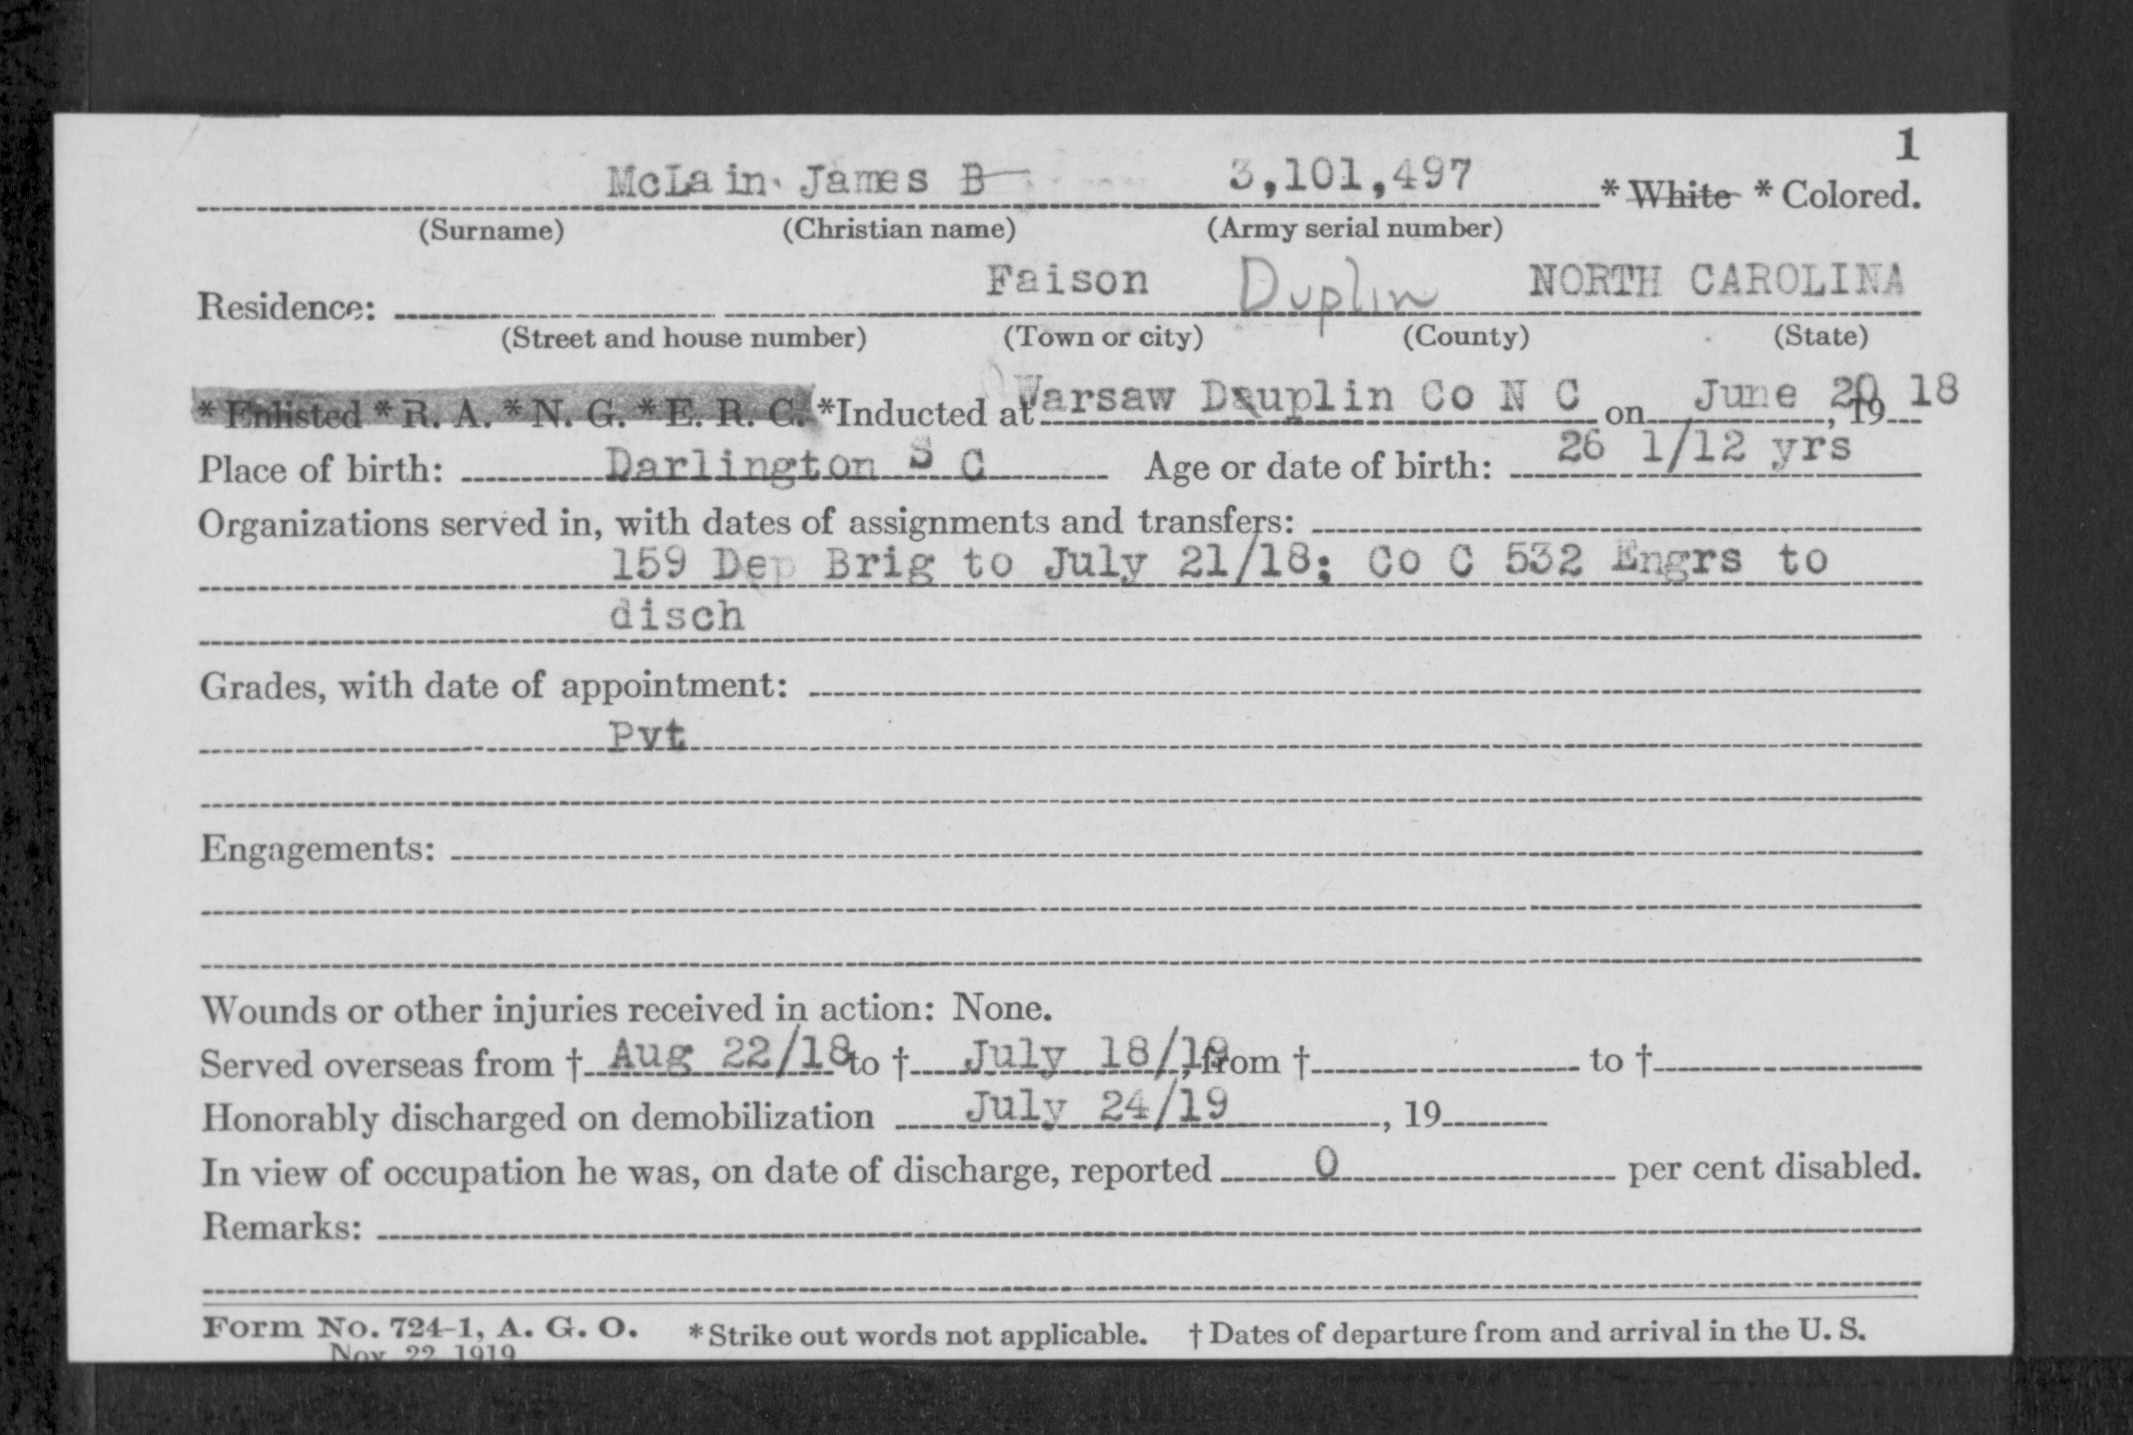 1
McLain James B 3,101,497 * White * Colored.
(Surname) (Christian name) (Army serial number)
Residence: Faison Duplin NORTH CAROLINA
(Street and house number) (Town or city) (County) (State)
* Enlisted * R. A. * N. G. * E. R. C. *Inducted at Warsaw Dauplin Co N C on June 20, 19 18
Place of birth: Darlington S C Age or date of birth: 26 1/12 yrs
Organizations served in, with dates of assignments and transfers:
159 Dep Brig to July 21/18; Co C 532 Engrs to
disch
Grades, with date of appointment:
Pvt
Engagements:
Wounds or other injuries received in action: None.
Served overseas from † Aug 22/18 to † July 18/19, from † to †
Honorably discharged on demobilization July 24/19, 19
In view of occupation he was, on date of discharge, reported 0 per cent disabled.
Remarks:
Form No. 724-1, A. G. O. * Strike out words not applicable. † Dates of departure from and arrival in the U. S.
Nov 22 1919